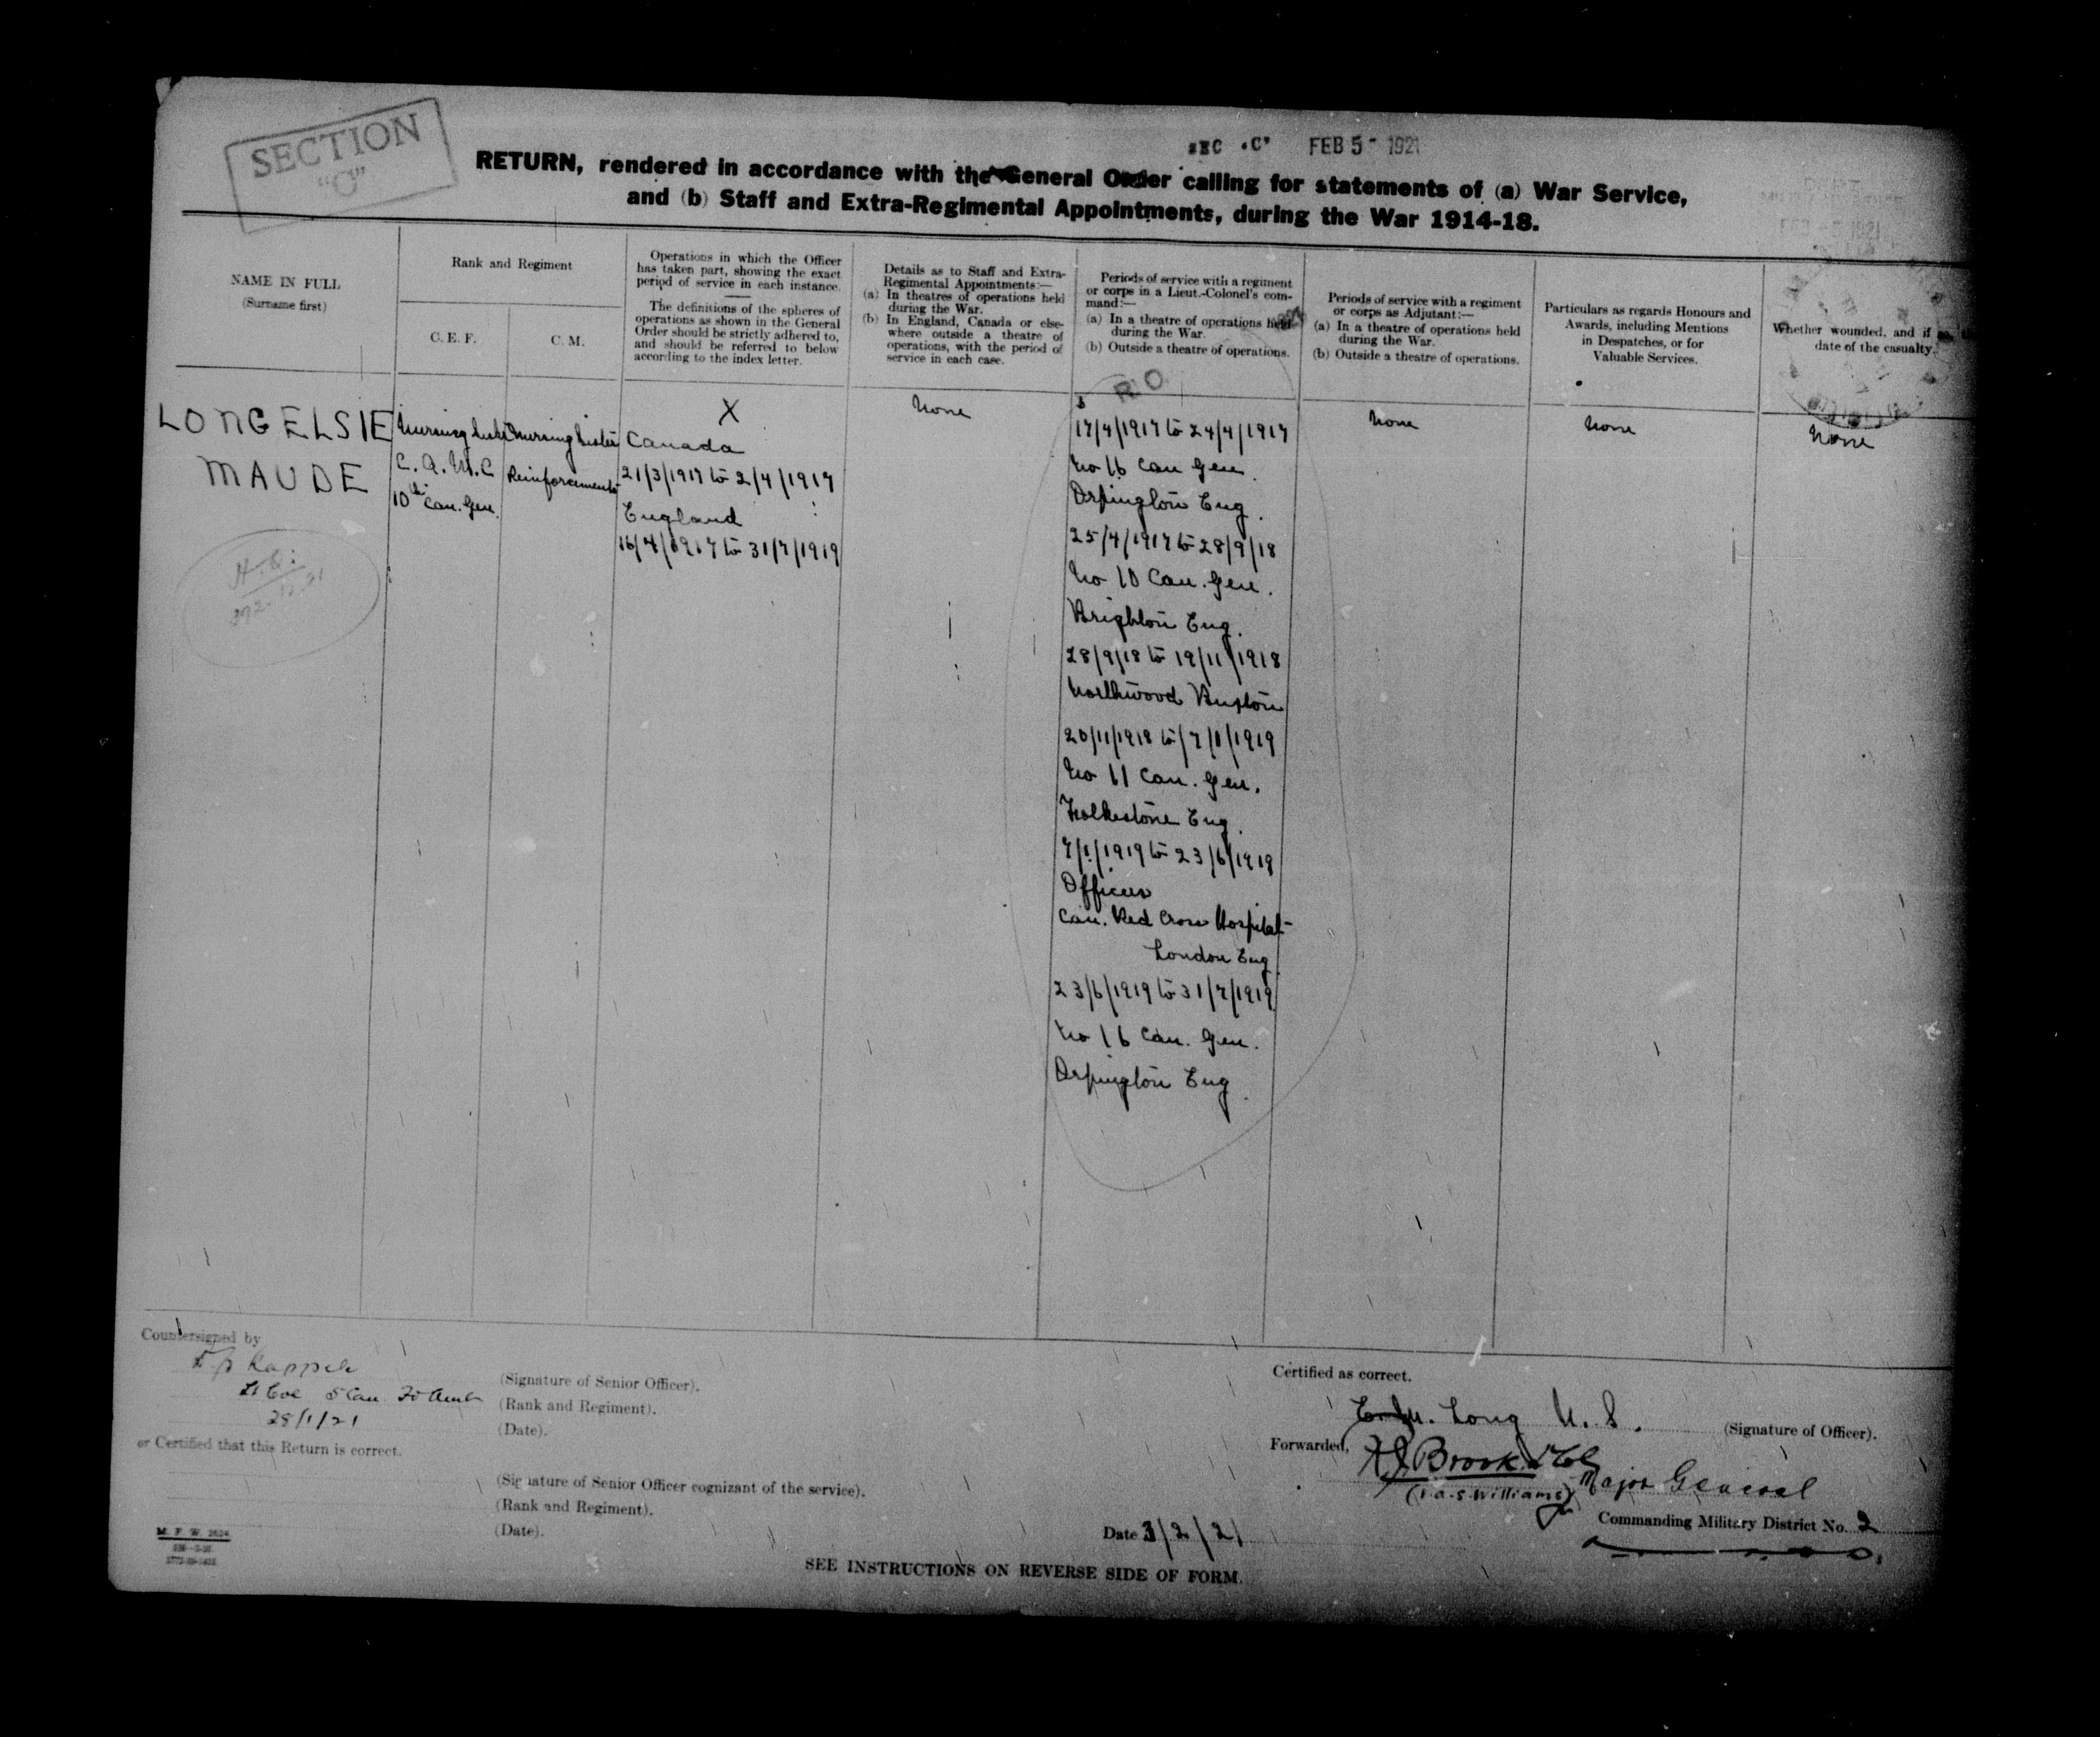 SECTION
"C"
SEC "C" FEB 5 - 1921
RETURN, rendered in accordance with the General Order calling for statements of (a) War Service,
and (b) Staff and Extra-Regimental Appointments, during the War 1914-18.
FEB - 5 1921
NAME IN FULL
(Surname first)
Rank and Regiment
C. E. F.
C. M.
Operations in which the Officer
has taken part, showing the exact
period of service in each instance.
The definitions of the spheres of
operations as shown in the General
Order should be strictly adhered to,
and should be referred to below
according to the index letter.
Details as to Staff and Extra-
Regimental Appointments:—
(a) In theatres of operations held
during the War.
(b) In England, Canada or else-
where outside a theatre of
operations, with the period of
service in each case.
Periods of service with a regiment
or corps in a Lieut.-Colonel's com-
mand:—
(a) In a theatre of operations held
during the War.
(b) Outside a theatre of operations.
Periods of service with a regiment
or corps as Adjutant:—
(a) In a theatre of operations held
during the War.
(b) Outside a theatre of operations.
Particulars as regards Honours and
Awards, including Mentions
in Despatches, or for
Valuable Services.
Whether wounded, and if
date of the casualty.
LONG ELSIE
MAUDE
Nursing Sister
C. A. M. C
10th Can. Gen.
Nursing Sister
Reinforcements
X
Canada
21/3/1917 to 2/4/1917
England
16/4/1917 to 31/7/1919
None
RO
17/4/1917 to 24/4/1917
No 16 Can Gen.
Orpington Eng.
25/4/1917 to 28/9/18
No 10 Can. Gen.
Brighton Eng.
28/9/18 to 19/11/1918
Northwood Buxton
20/11/1918 to 7/1/1919
No 11 Can. Gen.
Folkestone Eng.
7/1/1919 to 23/6/1919
Officers
Can. Red Cross Hospital
London Eng
23/6/1919 to 31/7/1919
No 16 Can. Gen.
Orpington Eng.
None
None
None
Countersigned by
Lt Col 5 Can Fd Amb
28/1/21
(Signature of Senior Officer).
(Rank and Regiment).
(Date).
or Certified that this Return is correct.
(Signature of Senior Officer cognizant of the service).
(Rank and Regiment).
(Date).
Certified as correct.
E. M. Long N. S. (Signature of Officer).
Forwarded,
Brook
Major General
Williams)
Commanding Military District No. 2
Date 3/2/21
M. F. W. 2624
SEE INSTRUCTIONS ON REVERSE SIDE OF FORM.